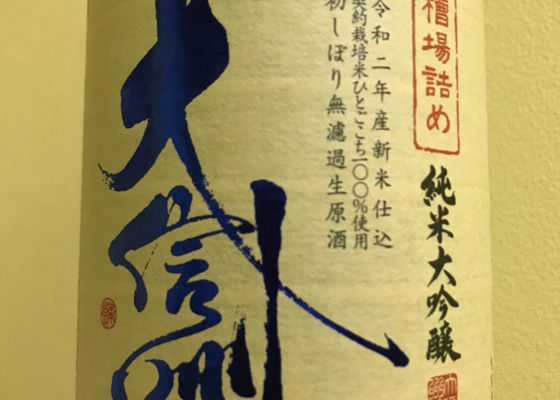 槽場詰め
純米大吟醸
令和二年産新米仕込
契約栽培米ひとごこち一〇〇%使用
初しぼり無濾過生原酒
大信州